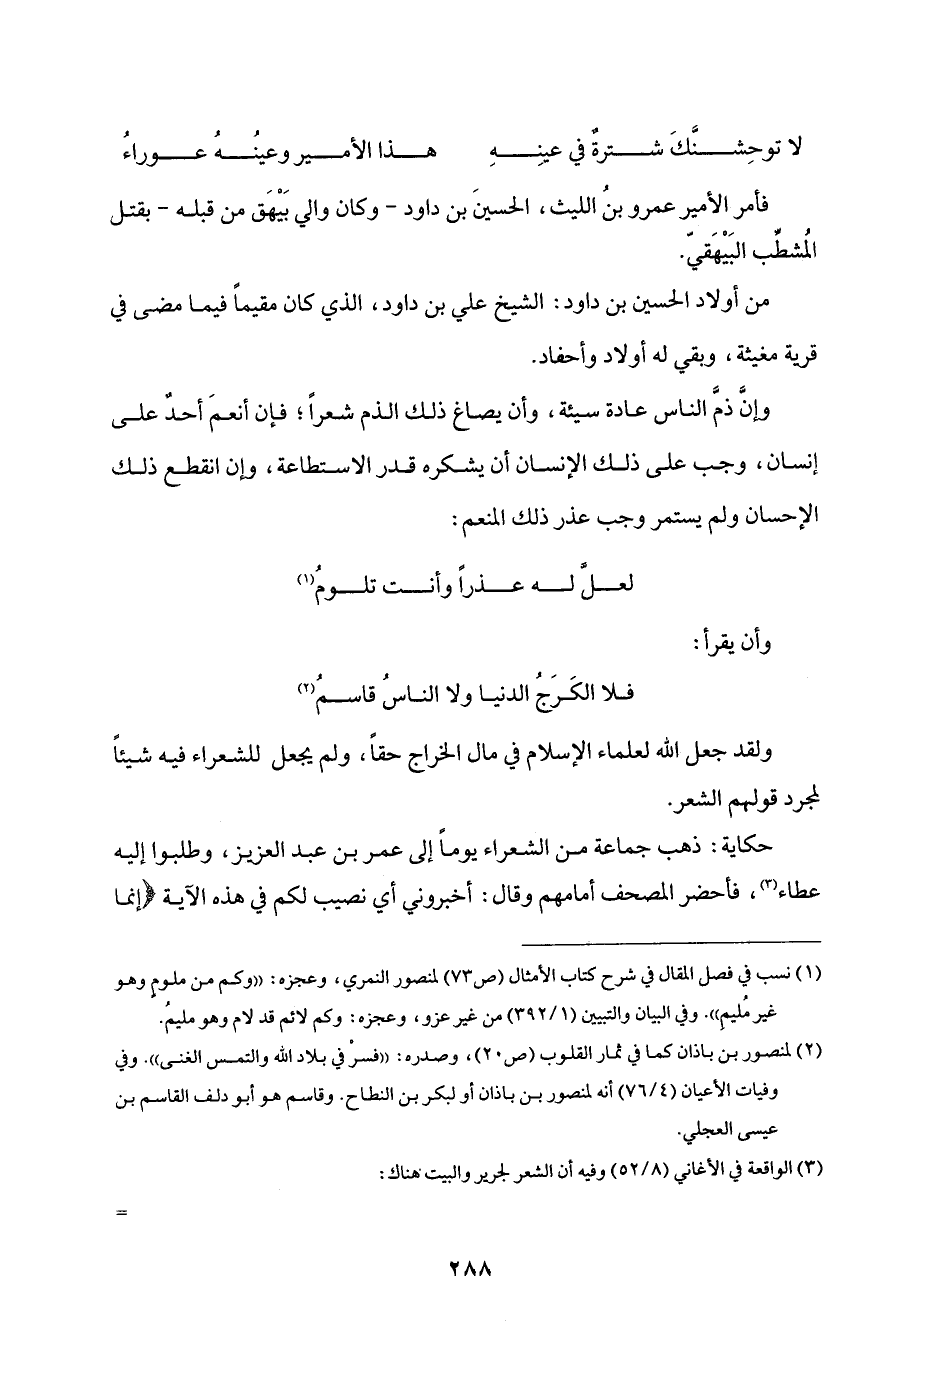 لا توحِشنَّكَ شترةٌ في عينِهِ هذا الأميرُ وعينُهُ عوراءُ
فأمر الأمير عمرو بنُ الليث، الحسينَ بن داود - وكان والي بَيْهَق من قبله - بقتل
المُشطَّب البَيْهَقيّ.
من أولاد الحسين بن داود: الشيخ علي بن داود، الذي كان مقيماً فيما مضى في
قرية مغيثة، وبقي له أولاد وأحفاد.
وإنَّ ذمَّ الناس عادة سيئة، وأن يصاغ ذلك الذم شعراً؛ فإن أنعمَ أحدٌ على
إنسان، وجب على ذلك الإنسان أن يشكره قدر الاستطاعة، وإن انقطع ذلك
الإحسان ولم يستمر وجب عذر ذلك المنعم:
لعلَّ له عذراً وأنت تلومُ(١)
وأن يقرأ:
فلا الكَرَجُ الدنيا ولا الناسُ قاسمُ(٢)
ولقد جعل الله لعلماء الإسلام في مال الخراج حقاً، ولم يجعل للشعراء فيه شيئاً
لمجرد قولهم الشعر.
حكاية: ذهب جماعة من الشعراء يوماً إلى عمر بن عبد العزيز، وطلبوا إليه
عطاء(٣)، فأحضر المصحف أمامهم وقال: أخبروني أي نصيب لكم في هذه الآية ﴿إنما
(١) نسب في فصل المقال في شرح كتاب الأمثال (ص٧٣) لمنصور النمري، وعجزه: «وكم من ملومٍ وهو
غير مُليمِ». وفي البيان والتبيين (٣٩٢/١) من غير عزو، وعجزه: وكم لائم قد لام وهو مليمُ.
(٢) لمنصور بن باذان كما في ثمار القلوب (ص٢٠)، وصدره: «فسرْ في بلاد الله والتمس الغنى». وفي
وفيات الأعيان (٧٦/٤) أنه لمنصور بن باذان أو لبكر بن النطاح. وقاسم هو أبو دلف القاسم بن
عيسى العجلي.
(٣) الواقعة في الأغاني (٥٢/٨) وفيه أن الشعر لجرير والبيت هناك:
=
٢٨٨